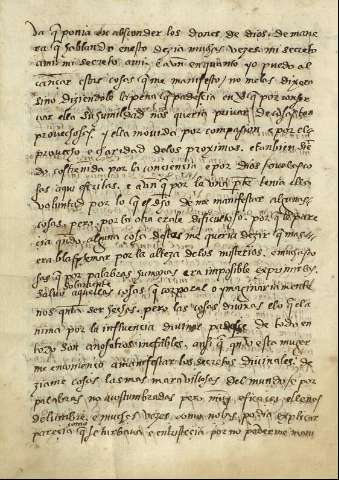 da q̃ ponia en absconder los dones de dios. de mane
ra q̃ hablando enesto dezia muchas vezes. mi secreto
ami mi secreto ami. E avn en quanto yo puedo al
cançar estas cosas q̃ me manifesto no me las dixera
sino diziendole la pena q̃ padescia en
ella su humildad nos queria privar de cosas tan
provechosas. y ella movida por compasion e por el
provecho e claridad delos proximos. e tambien
do costreñida por la conciencia e por dios
sas aqui escritas. e avn q̃ por la vna pte tenia ella
voluntad por lo q̃ es dho de me manifestar algunas
cosas, pero por la otra erale dificultoso por q̃ le pare
cia qndo alguna cosa destas me queria dezir q̃ mas
era blasfemar por la alteza delos misterios.
sas q̃ por palabras humanas era imposible exprimirlas.
Salvo aquellas cosas q̃ corporal o imaginariamente
pero las cosas divinas el a
nima por la influencia divina padesce de todo en
todo son anosotros inefables. ansi q̃ qndo esta muger
me començava a manifestar los secretos divinales. de
ziame cosas las mas maravillosas del mundo e por
palabras no acostumbradas pero muy eficaces e llenas
de lumbre. e muchas vezes como no las podia explicar
parecia como q̃ se turbava e entristecia por no poderme mani